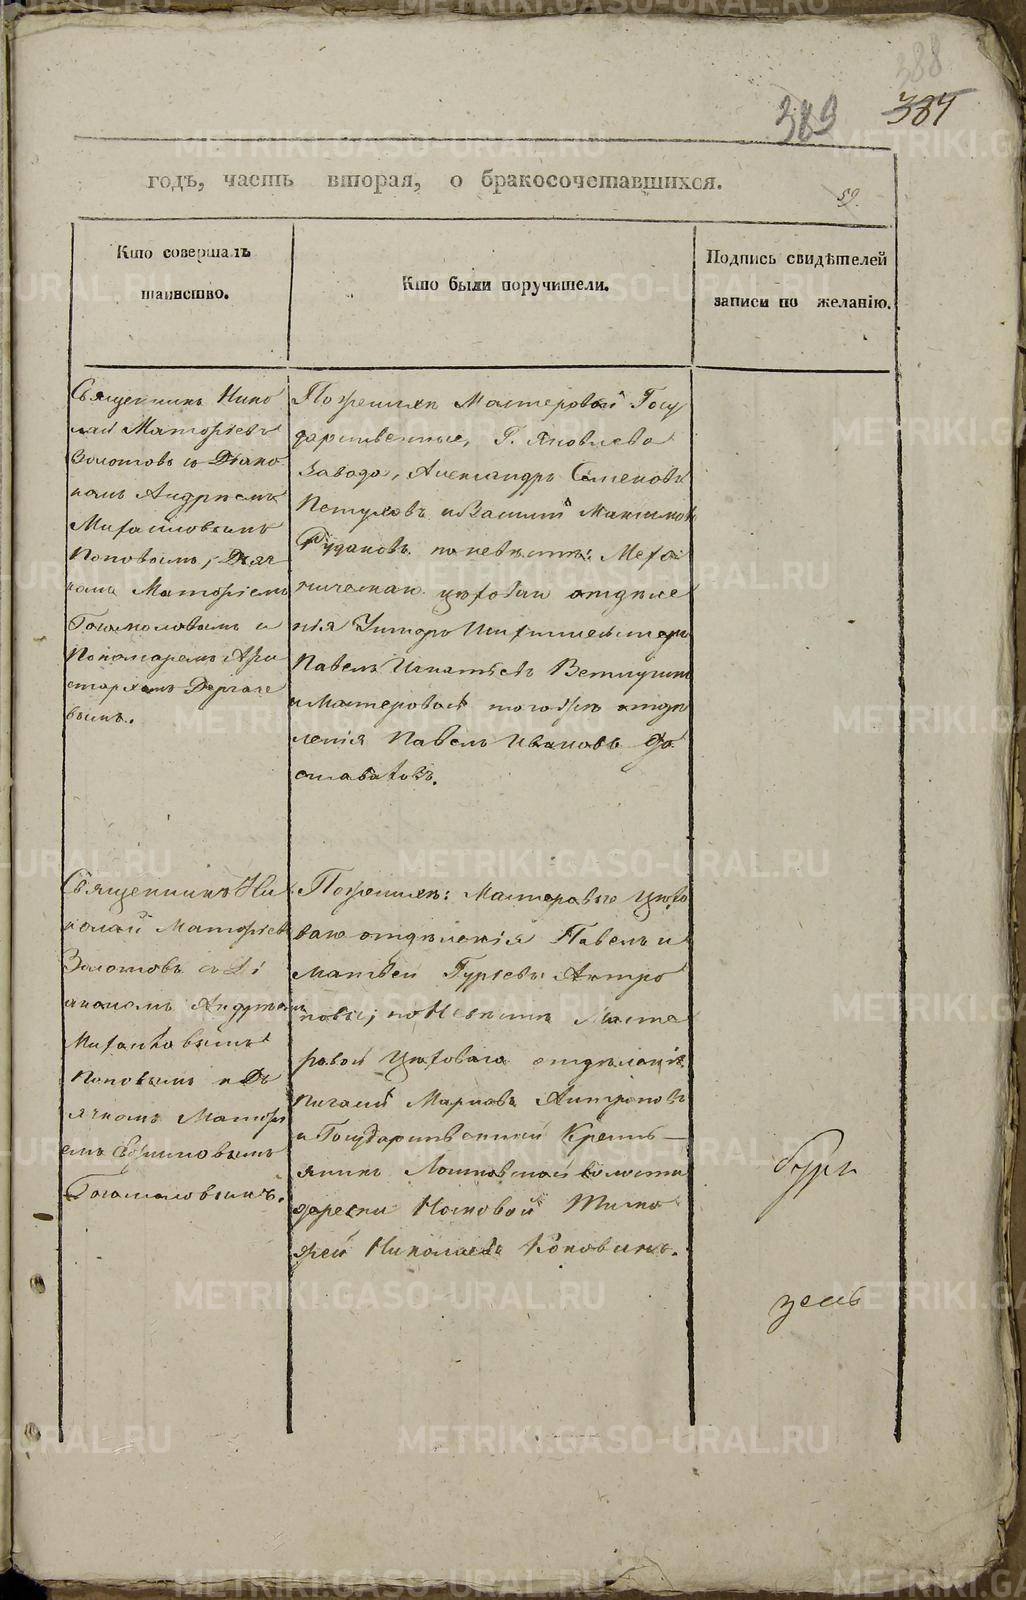 388
389 387
годъ, часть вторая, о бракосочетавшихся.
59.
Кто совершалъ
таинство.
Кто были поручители.
Подпись свидѣтелей
записи по желанію.
Священникъ Нико
лай Матфіевъ
Золотовъ съ Діако
номъ Андреемъ
Михайловымъ
Поповымъ, Дьяч
комъ Матфіемъ
Богомоловымъ и
Пономаремъ Ари
стархомъ Дергаче
вымъ.
По женихѣ Мастеровой Госу
дарственные, Г. Яковлева
завода, Александръ Семеновъ
Петуховъ и Василій Максимовъ
Рудаковъ по невѣстѣ: Меха
ническаго цеховаго отдѣле
нія Унтеръ Шихтмейстеръ
Павелъ Игнатьевъ Ветлугинъ
и Мастеровой того же отдѣ
ленія Павелъ Ивановъ
Священникъ Ни
колай Матфіевъ
Золотовъ съ Ді
акономъ Андреемъ
Михайловымъ
Поповымъ и Дь
ячкомъ Матфі
емъ
Богомоловымъ.
По женихѣ: Мастеровые Цехо
ваго отдѣленія Павелъ и
Матвей Гурьевы Антро
повы; по Невѣстѣ Масте
ровой Цеховаго отдѣленія
Пигасій Марковъ Антроповъ
и Государственный Кресть
янинъ волости
деревни Носковой Тимо
фей Николаевъ Коповинъ.
бургъ
земъ
METRIKI.GASO-URAL.RU